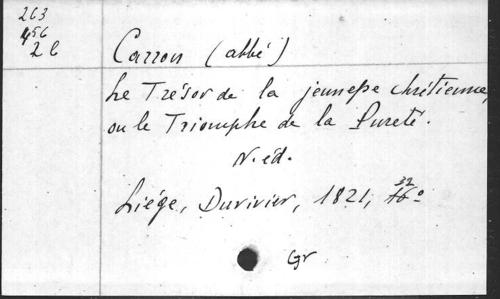 263
456
2 C
Carron (abbé)
Le Trésor de la jeunesse chrétienne,
ou le Triomphe de la Pureté.
N. éd.
Liége, Duvivier, 1821, 32°
Gr